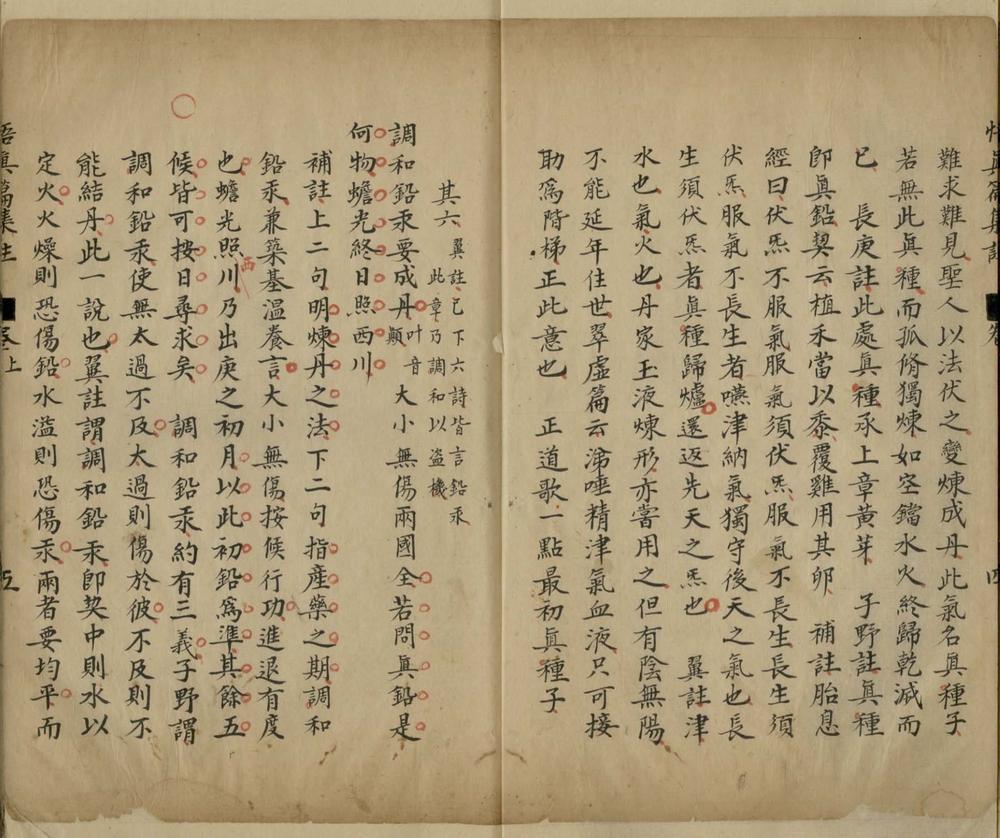 難求難見聖人以法伏之變煉成丹此氣名眞種子
若無此眞種而孤脩獨煉如空鐺水火終歸乾滅而
已　長庚註此處眞種承上章黃芽　子野註眞種
卽眞鉛契云植禾當以黍覆雞用其卵　補註胎息
經曰伏炁不服氣服氣須伏炁服氣不長生長生須
伏炁服氣不長生者嚥津納氣獨守後天之氣也長
生須伏炁者眞種歸爐還返先天之炁也　翼註津
水也氣火也丹家玉液煉形亦嘗用之但有陰無陽
不能延年住世翠虛篇云涕唾精津氣血液只可接
助爲階梯正此意也　正道歌一點最初眞種子
其六　翼註已下六詩皆言鉛汞
此章乃調和以盜機
調和鉛汞要成丹叶音顚大小無傷兩國全若問眞鉛是
何物蟾光終日照西川
補註上二句明煉丹之法下二句指產藥之期調和
鉛汞兼築基溫養言大小無傷按候行功進退有度
也蟾光照西川乃出庚之初月以此初鉛爲準其餘五
候皆可按日尋求矣　調和鉛汞約有三義子野謂
調和鉛汞使無太過不及太過則傷於彼不及則不
能結丹此一說也翼註謂調和鉛汞卽契中則水以
定火火燥則恐傷鉛水溢則恐傷汞兩者要均平而
悟眞篇集註　卷上　五